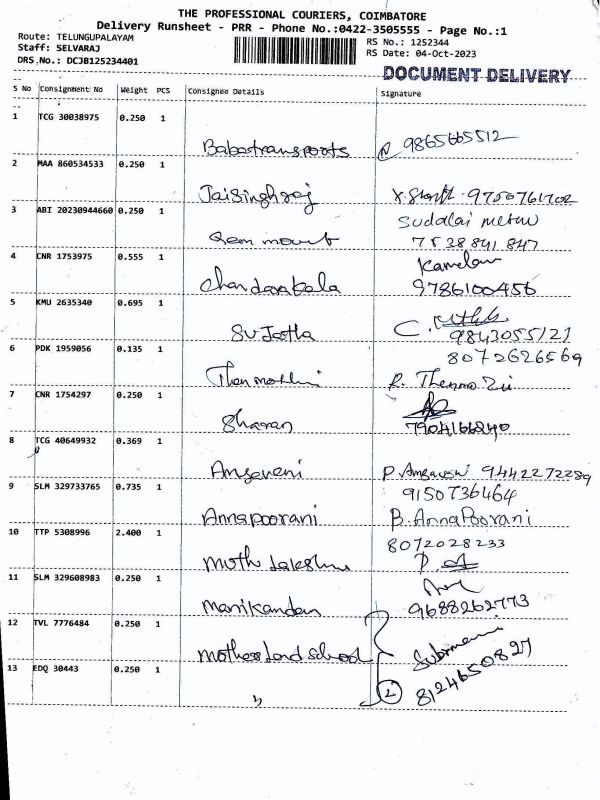 THE PROFESSIONAL COURIERS, COIMBATORE
Delivery Runsheet - PRR - Phone No.:0422-3505555 - Page No.:1
Route: TELUNGUPALAYAM
RS No.: 1252344
Staff: SELVARAJ
RS Date: 04-Oct-2023
DRS.No.: DCJB125234401
DOCUMENT DELIVERY
S No Consignment No Weight PCS Consignee Details Signature
1 TCG 30038975 0.250 1
Babatransports 9865665512
2 MAA 860534533 0.250 1
Jaisinghraj 9750761702
3 ABI 20230944660 0.250 1 Sudalai
7538841847
4 CNR 1753975 0.555 1
Chandarakala 9786100456
5 KMU 2635340 0.695 1
Sujatha C. 9843055121
6 PDK 1959056 0.135 1 8072626569
R. Thenmozii
7 CNR 1754297 0.250 1
Sharan 7904166240
8 TCG 40649932 0.369 1
9442272289
9 SLM 329733765 0.735 1 9150736464
Annapoorani B. AnnaPoorani
10 TTP 5308996 2.400 1 8072028233
11 SLM 329608983 0.250 1
Manikandan 9688262773
12 TVL 7776484 0.250 1
school
13 EDQ 30443 0.250 1 8124650827
2